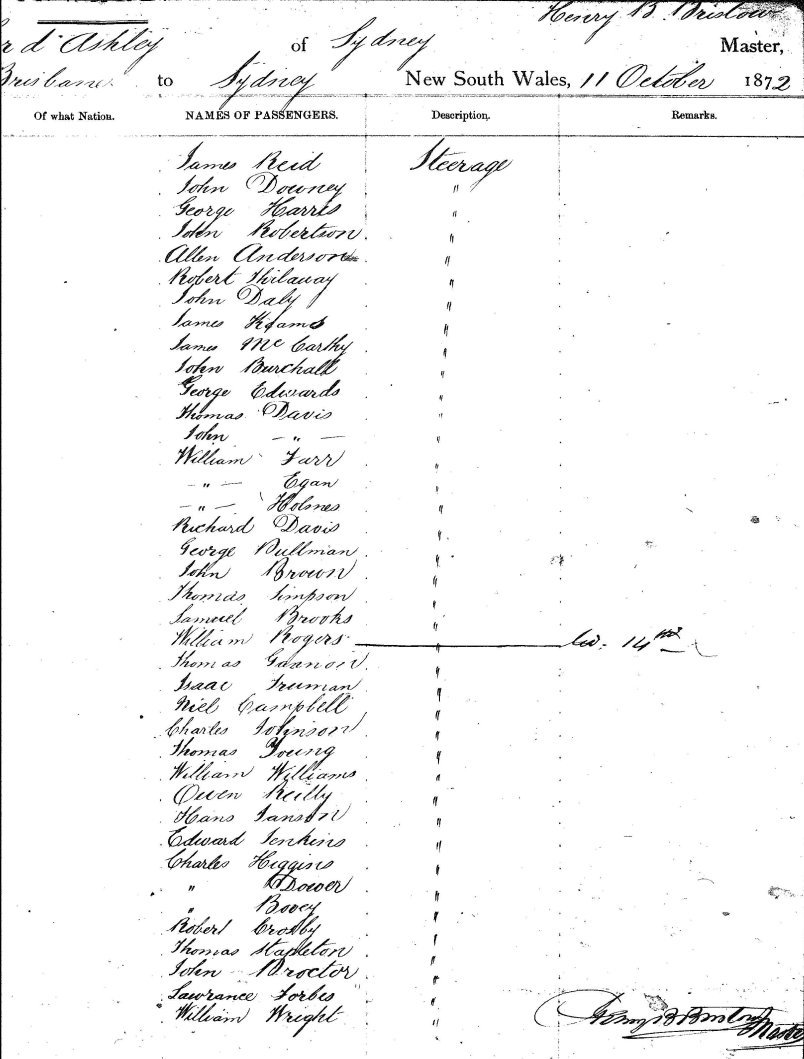 Henry B. Bristow
r d'Ashley of Sydney Master,
Brisbane to Sydney New South Wales, 11 October 1872
Of what Nation. NAMES OF PASSENGERS. Description. Remarks.
James Reid Steerage
John Downey "
George Harris "
John Robertson "
Allen Anderson "
Robert "
John Daly "
James "
James McCarthy "
John Burchall "
George Edwards "
Thomas Davis "
John — " — "
William Farr "
— " — Egan "
— " — Holmes "
Richard Davis "
George Pullman "
John Brown "
Thomas Simpson "
Samuel Brooks "
William Rogers " 14
Thomas "
Isaac Truman "
Niel Campbell "
Charles Johnson "
Thomas Young "
William Williams "
Owen Reilly "
Hans Janson "
Edward Jenkins "
Charles Higgins "
" "
" Bovey "
Robert Crosby "
Thomas Stapleton "
John Proctor "
Lawrance Forbes "
William Wright "
Henry B Bristow
Master